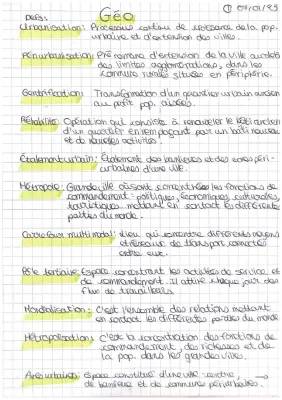 DEFS: Géo ① 07/01/25
Urbanisation: Processus continu de croissance de la pop.
urbaine et d'extension des villes.
Périurbanisation: Phénomène d'extension de la ville au-delà
des limites agglomérations, dans les
communes rurales situées en périphérie.
Gentrification: Transformation d'un quartier urbain ancien
au profit pop. aisées.
Réhabilité: Opération qui consiste à renouveler le bâti ancien
d'un quartier en remplaçant par un bâti nouveau
et de nouvelles activités.
Étalement urbain: Étalement des banlieues et des zones péri-
urbaines d'une ville.
Métropole: Grande ville où sont concentrées les fonctions de
commandement - politiques, économiques, culturelles,
touristiques mettant en contact les différentes
parties du monde.
Carrefour multimodal: Lieu qui concentre différents moyens
et réseaux de transport connectés
entre eux.
Pôle tertiaire: Espace concentrant les activités de service et
de commandement. Il attire chaque jour des
flux de travailleurs
Mondialisation: C'est l'ensemble des relations mettant
en contact les différentes parties du monde
Métropolisation: c'est la concentration des fonctions de
commandement, des richesses et de
la pop. dans les grandes villes.
Aire urbaine: Espace constitué d'une ville centre, →
de banlieue et de communes périurbaines.